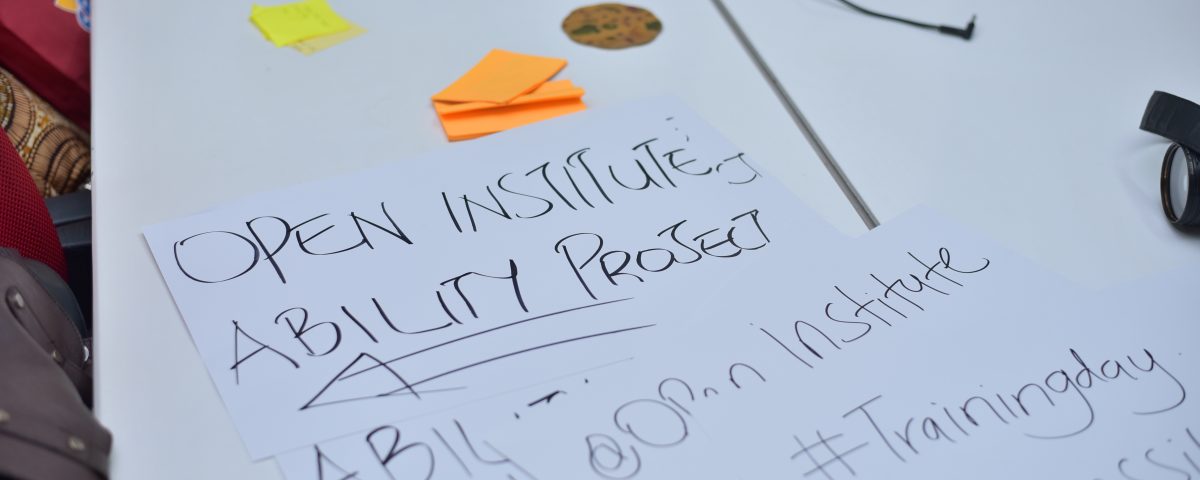 OPEN INSTITUTE:
ABILITY PROJECT
@Open Institute
#Trainingday